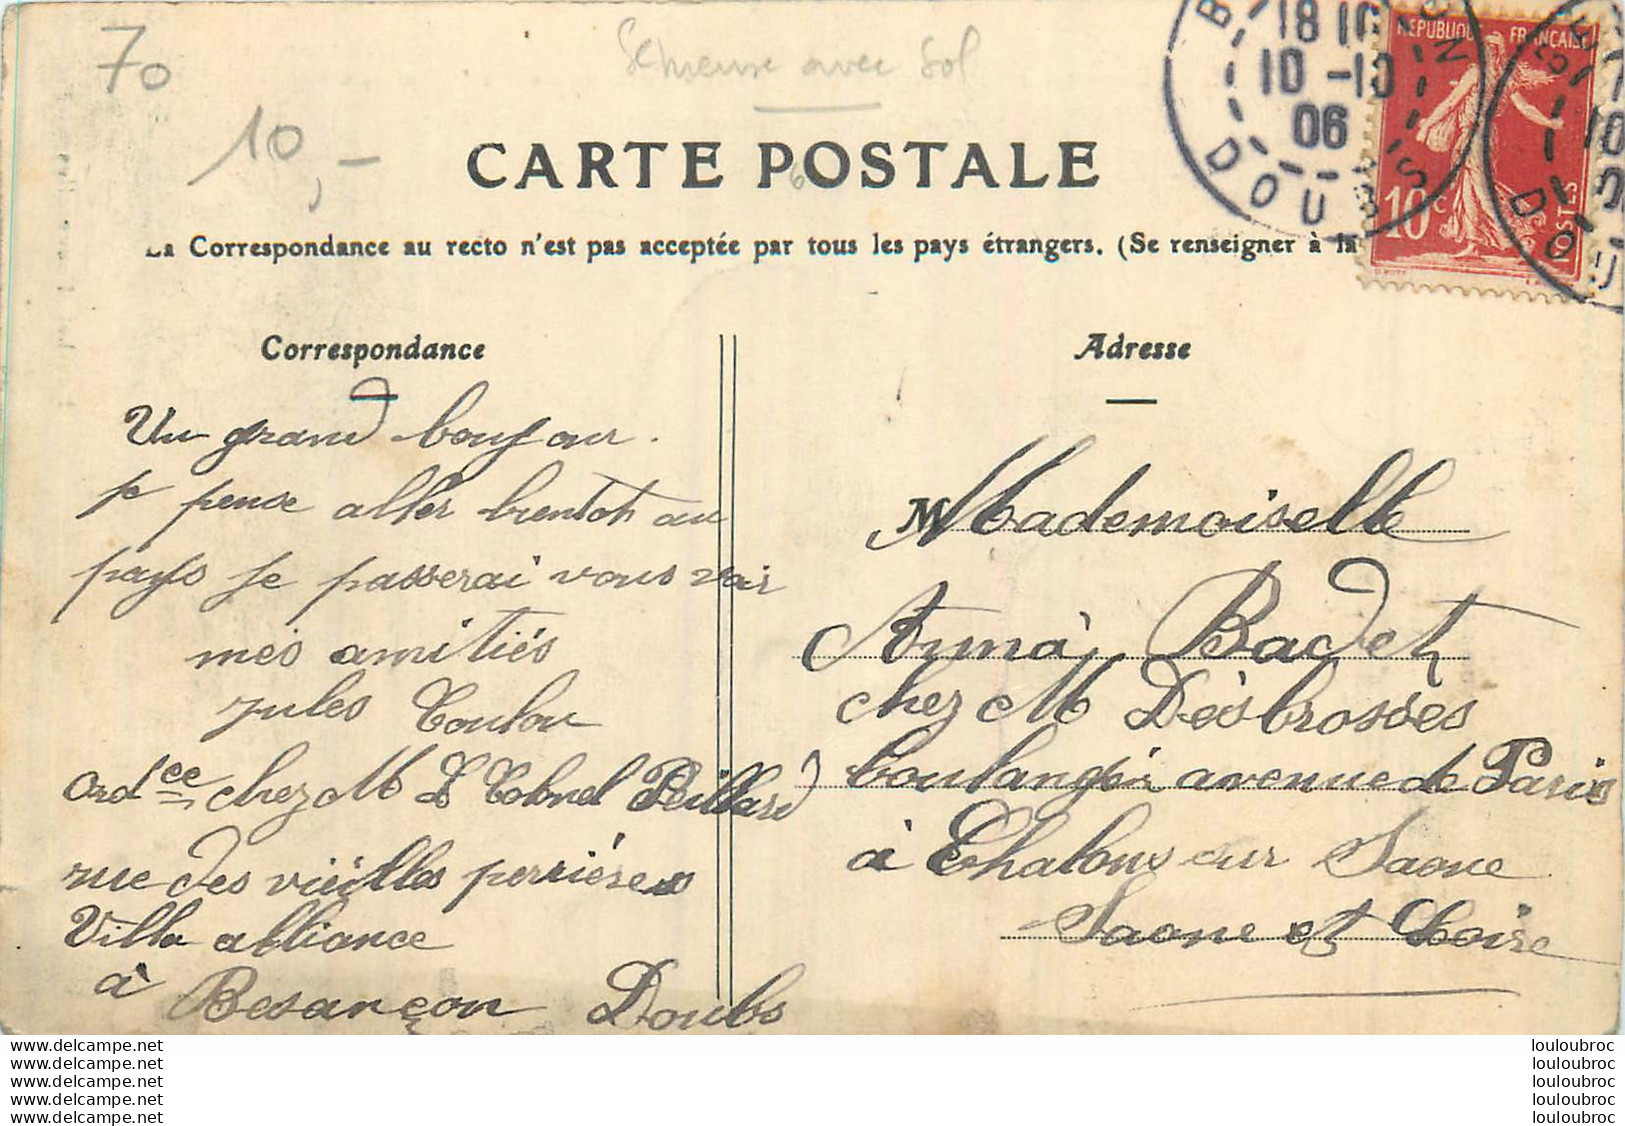 70
10,-
Semeuse avec Sol
CARTE POSTALE
La Correspondance au recto n'est pas acceptée par tous les pays étrangers. (Se renseigner à la
18 10
10 -10
06
DOUBS
REPUBLIQUE FRANÇAISE
10c
POSTES
Correspondance
Un grand bonjour.
je pense aller bientot au
pays je passerai vous voir
mes amitiés
Jules Coulon
ordce chez M L Colonel Peillard
rue des vieilles perrières
Villa alliance
à Besançon Doubs
Adresse
M Mademoiselle
Anna Badet
chez M Desbrosses
boulanger avenue de Paris
à Chalons sur Saone
Saone et Loire
www.delcampe.net louloubroc
www.delcampe.net louloubroc
www.delcampe.net louloubroc
www.delcampe.net louloubroc
www.delcampe.net louloubroc